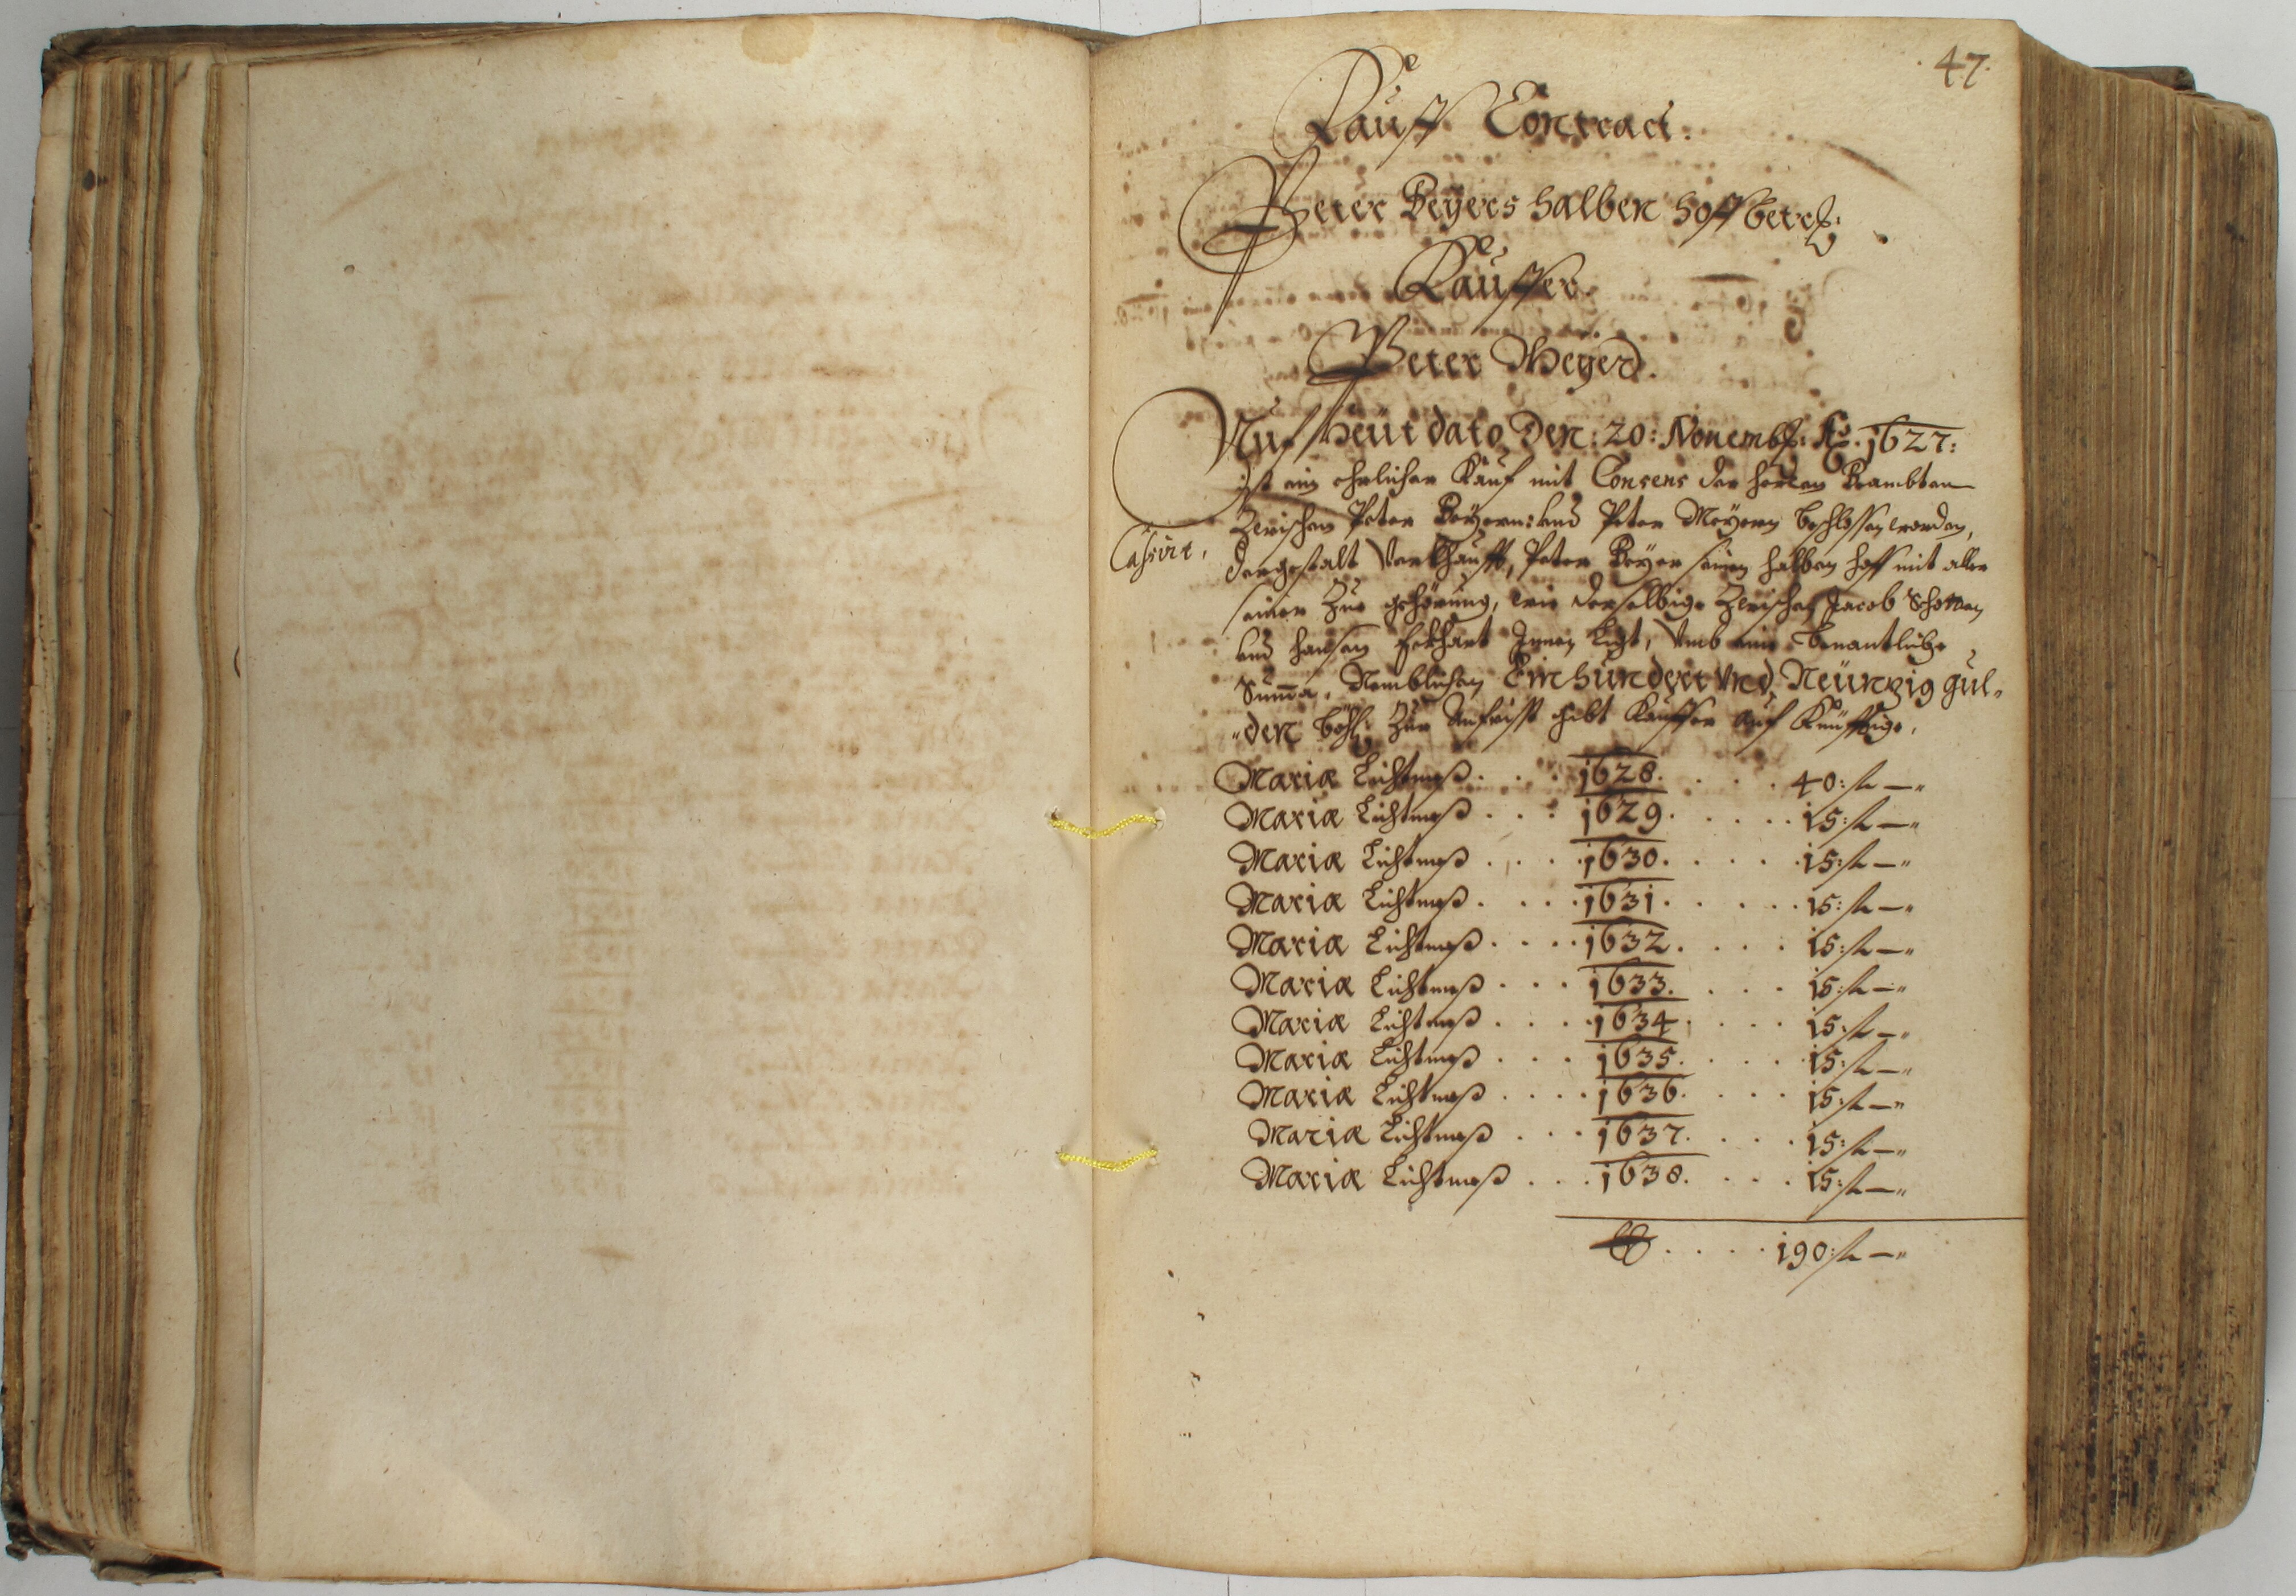 47.
Kauff Contract.
Peter Beÿers halben hoff betref:
Kauffer.
Peter Meÿer.
Auf heut dato den: 20: Nouemb: Ao. 1627:
ist ein ehrlicher Kauf mit Consens der herren Beambten
Zwischen Peter Beÿern: vnd Peter Meÿern beschlossen worden,
Cassirt,
dergestalt Verkhaufft, Peter Beÿer seinen halben hoff mit aller
seiner Zue gehörung, wie derselbige Zwischen Jacob
vnd hansen Eckhart Innen ligt, Vmb eine benantliche
Summa, Nemblichen Ein hundert vnd Neunzig gul-
den böhl: Zur Anfrist gibt Kauffer auf Künfftige,
Mariæ Liechtmeß . . . 1628. . . . 40: fl —"
Mariæ Liechtmeß . . . 1629. . . . 15: fl —"
Mariæ Liechtmeß . . . 1630. . . . 15: fl —"
Mariæ Liechtmeß . . . 1631. . . . 15: fl —"
Mariæ Liechtmeß . . . 1632. . . . 15: fl —"
Mariæ Liechtmeß . . . 1633. . . . 15: fl —"
Mariæ Liechtmeß . . . 1634. . . . 15: fl —"
Mariæ Liechtmeß . . . 1635. . . . 15: fl —"
Mariæ Liechtmeß . . . 1636. . . . 15: fl —"
Mariæ Liechtmeß . . . 1637. . . . 15: fl —"
Mariæ Liechtmeß . . . 1638. . . . 15: fl —"
. . . . 190: fl —"